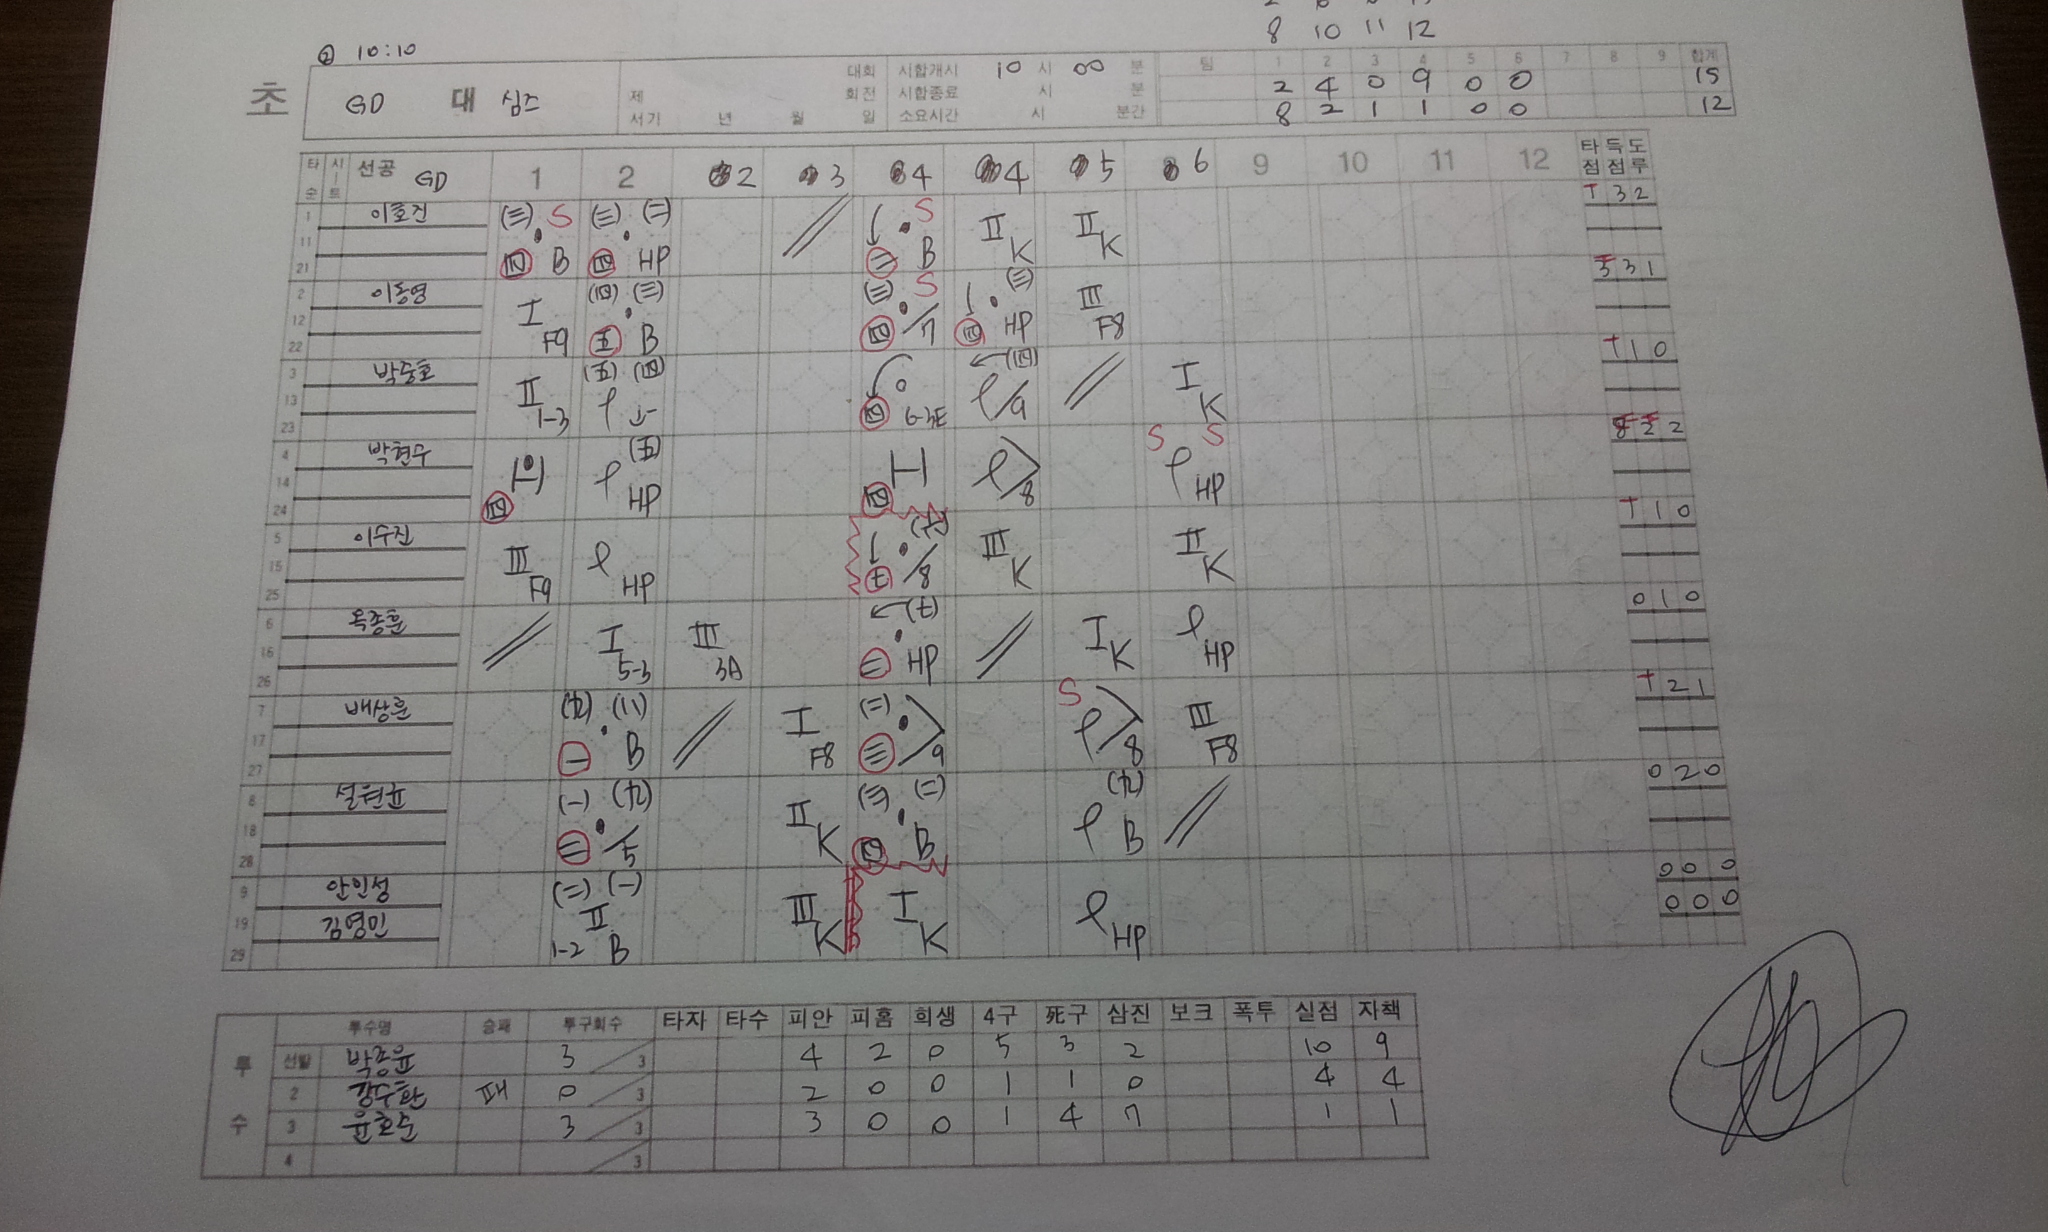 8 10 11 12
② 10:10
초 GD 대 심즈 제 대회 회전 서기 년 월 일
시합개시 10 시 00 분
시합종료 시 분
소요시간 시 분간
팀 1 2 3 4 5 6 7 8 9 합계
2 4 0 9 0 0 15
8 2 1 1 0 0 12
타순 시트 선공 GD 1 2 2 3 4 4 5 6 9 10 11 12 타점 득점 도루
1 11 21 이호진 (三) S 四 B (三) (二) 四 HP // S 三 B II K II K 3 2
2 12 22 이동영 I F9 (四) (三) 五 B (三) S 四 /7 (三) 四 HP III F8 3 1
3 13 23 박동호 II 1-3 (五) (四) 四 6-3E (四) /9 // I K 1 0
4 14 24 박현수 四 (五) HP 四 8 S S HP 2
5 15 25 이수진 III F9 HP 七 /8 III K II K 1 0
6 16 26 옥종훈 // I 5-3 III 3A (七) 二 HP // I K HP 0 1 0
7 17 27 배상훈 (九) 一 B // I F8 (二) 三 9 S 8 III F8 2 1
8 18 28 설현균 (一) (九) 三 /5 II K (三) (二) 四 B (九) B // 0 2 0
9 안인성 (二) (一) II 1-2 B III K I K HP 0 0 0
19 김영민 0 0 0
29
투수 투수명 승패 투구회수 타자 타수 피안 피홈 희생 4구 死구 삼진 보크 폭투 실점 자책
선발 박종윤 3 /3 4 2 0 5 3 2 10 9
2 강수환 패 0 /3 2 0 0 1 1 0 4 4
3 윤호준 3 /3 3 0 0 1 4 7 1 1
4 /3